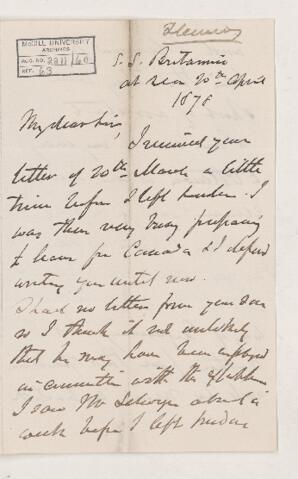 Fleming
McGILL UNIVERSITY
ARCHIVES
ACC. NO. 2211/60
REF. 63
S. S. Britannic
at sea 20th April
1878
My dear Sir,
I received your
letter of 20th March a little
time before I left London. I
was then very busy preparing
to leave for Canada & I defered
writing you until now.
I had no letter from your son
so I think it not unlikely
that he may have been employed
in connection with the Exhibition
I saw Mr Selwyn about a
week before I left London